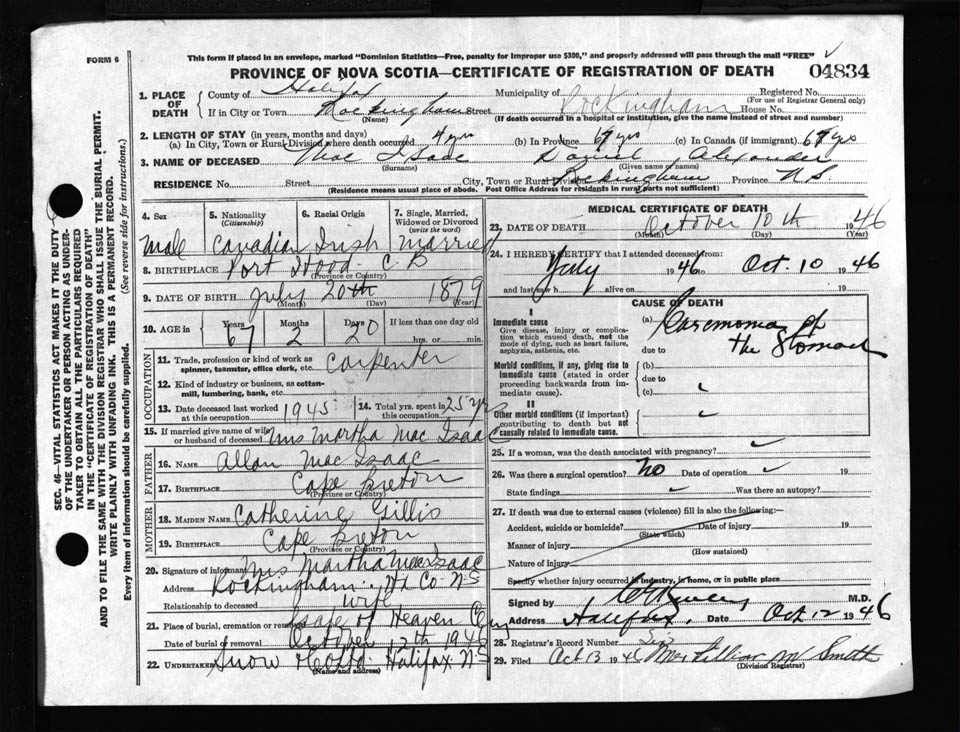 FORM 6
This form if placed in an envelope, marked "Dominion Statistics—Free, penalty for improper use $300," and properly addressed will pass through the mail "FREE"
PROVINCE OF NOVA SCOTIA—CERTIFICATE OF REGISTRATION OF DEATH 04834
1. PLACE OF DEATH
County of Halifax Municipality of Rockingham Registered No.
(For use of Registrar General only)
If in City or Town Rockingham Street House No.
(Name) (If death occurred in a hospital or institution, give the name instead of street and number)
2. LENGTH OF STAY (in years, months and days)
(a) In City, Town or Rural Division where death occurred 4 yrs (b) In Province 67 yrs (c) In Canada (if immigrant) 67 yrs
3. NAME OF DECEASED Mac Isaac Daniel Alexander
(Surname) (Given name or names)
RESIDENCE No. Street City, Town or Rural Division Rockingham Province N.S.
(Residence means usual place of abode. Post Office Address for residents in rural parts not sufficient)
SEC. 46—VITAL STATISTICS ACT MAKES IT THE DUTY
OF THE UNDERTAKER OR PERSON ACTING AS UNDER-
TAKER TO OBTAIN ALL THE PARTICULARS REQUIRED
IN THE "CERTIFICATE OF REGISTRATION OF DEATH"
AND TO FILE THE SAME WITH THE DIVISION REGISTRAR WHO SHALL ISSUE THE BURIAL PERMIT.
WRITE PLAINLY WITH UNFADING INK. THIS IS A PERMANENT RECORD.
Every item of information should be carefully supplied. (See reverse side for instructions.)
4. Sex
male
5. Nationality
(Citizenship)
Canadian
6. Racial Origin
Irish
7. Single, Married,
Widowed or Divorced
(write the word)
Married
8. BIRTHPLACE Port Hood C.B
(Province or Country)
9. DATE OF BIRTH July 20th 1879
(Month) (Day) (Year)
10. AGE in Years Months Days If less than one day old
67 2 20 hrs. or min.
OCCUPATION
11. Trade, profession or kind of work as
spinner, teamster, office clerk, etc. Carpenter
12. Kind of industry or business, as cotton-
mill, lumbering, bank, etc.
13. Date deceased last worked
at this occupation 1945
14. Total yrs. spent in
this occupation 25 yrs
15. If married give name of wife
or husband of deceased Mrs Martha Mac Isaac
FATHER
16. NAME Allan Mac Isaac
17. BIRTHPLACE Cape Breton
(Province or Country)
MOTHER
18. MAIDEN NAME Catherine Gillis
19. BIRTHPLACE Cape Breton
(Province or Country)
20. Signature of informant Mrs Martha MacIsaac
Address Rockingham, Hx Co. N.S
Relationship to deceased Wife
21. Place of burial, cremation or removal of Heaven
Date of burial or removal October 12th 1946
22. UNDERTAKER Snow & Co Ltd. Halifax N.S
(Name and address)
MEDICAL CERTIFICATE OF DEATH
23. DATE OF DEATH October 10th 1946
(Month) (Day) (Year)
24. I HEREBY CERTIFY that I attended deceased from:
July 1946 to Oct. 10 1946
and last saw h alive on 19
CAUSE OF DEATH
I
Immediate cause
Give disease, injury or complica-
tion which caused death, not the
mode of dying, such as heart failure,
asphyxia, asthenia, etc.
(a) Carcinoma of
the Stomach
due to
Morbid conditions, if any, giving rise to
immediate cause (stated in order
proceeding backwards from im-
mediate cause).
(b)
due to
(c)
II
Other morbid conditions (if important)
contributing to death but not
causally related to immediate cause.
25. If a woman, was the death associated with pregnancy?
26. Was there a surgical operation? No Date of operation 19
State findings Was there an autopsy?
27. If death was due to external causes (violence) fill in also the following:
Accident, suicide or homicide? Date of injury 19
(State which)
Manner of injury
(How sustained)
Nature of injury
Specify whether injury occurred in industry, in home, or in public place
Signed by M.D.
Address Halifax Date Oct 12 1946
28. Registrar's Record Number
29. Filed Oct 13 194 Smith
(Division Registrar)